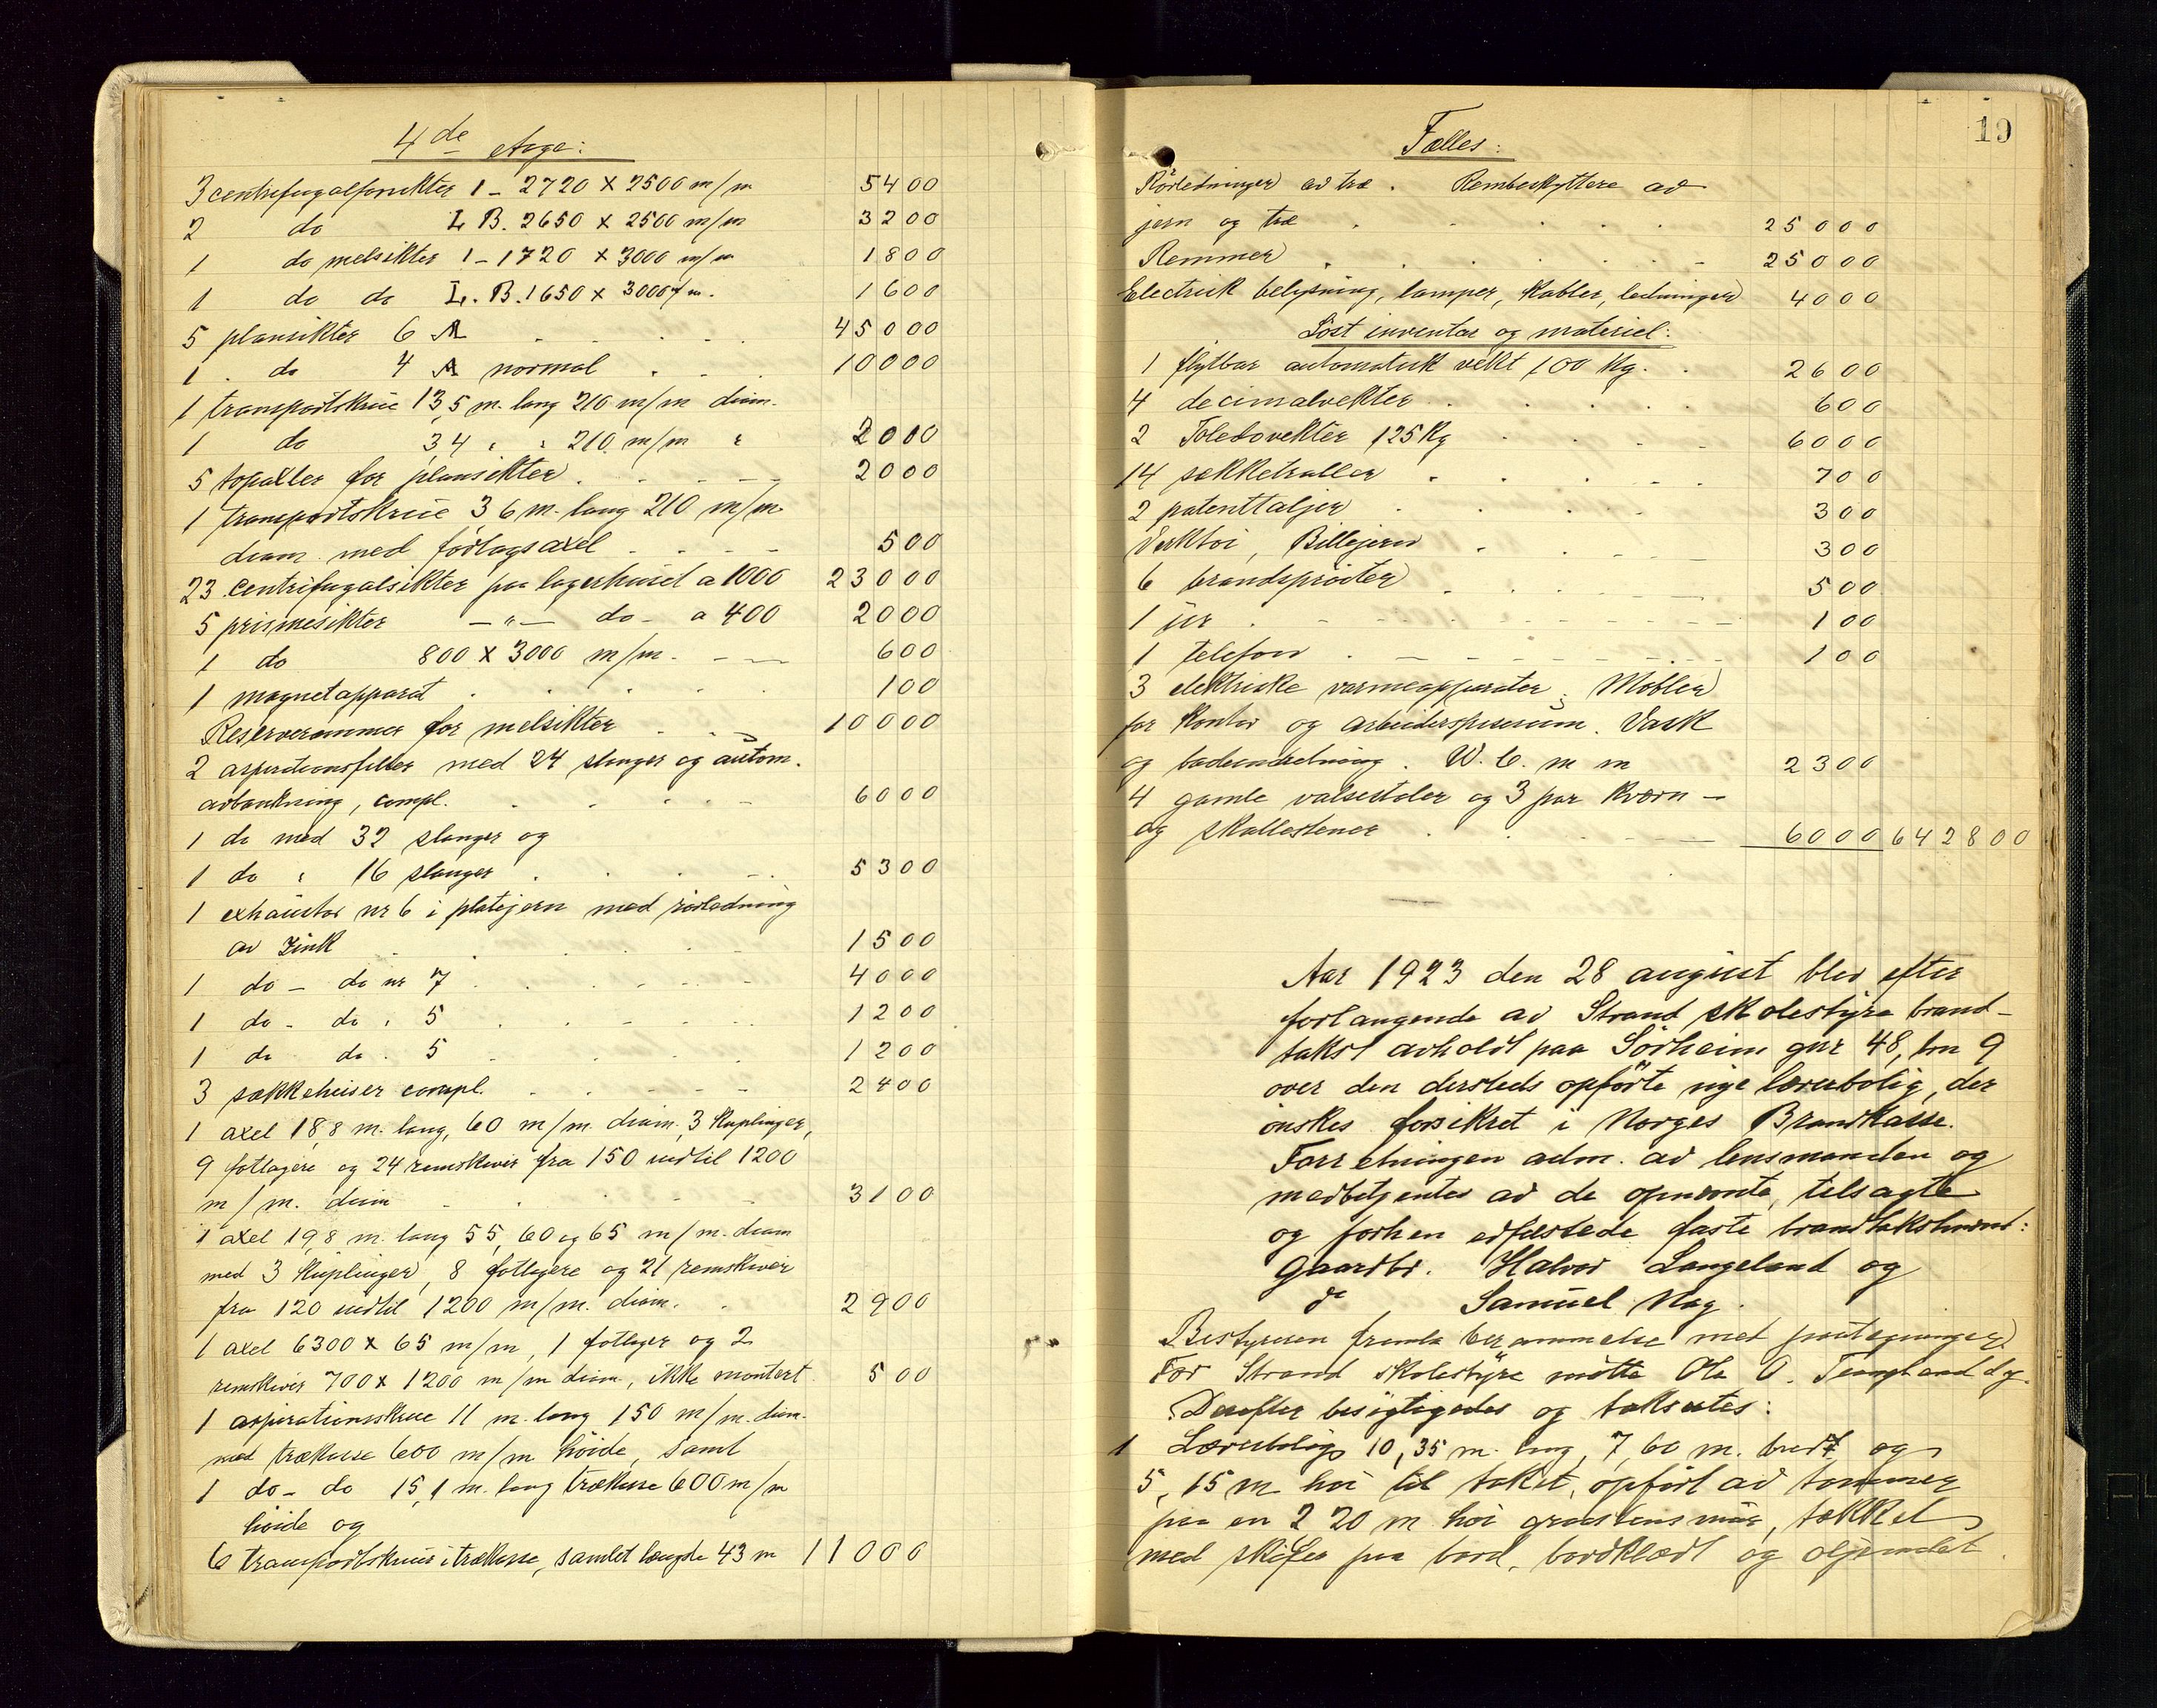 4de etage:
3 centrifugalsrikter 1 - 2720 x 2500 m/m 5400
2 do L. B. 2650 x 2500 m/m 3200
1 do melsikter 1 - 1720 x 3000 m/m 1800
1 do do L. B. 1650 x 3000 m/m. 1600
5 plansikter 6 A 45000
1 do 4 A normal 10000
1 transportskrue 13,5 m. lang 210 m/m diam.
1 do 34 " " 210 m/m " 2000
5 topaxler for plansikter 2000
1 transportskrue 36 m. lang 210 m/m
diam. med forlagsaxel 500
23 centrifugalsikter paa lagerhuset a 1000 23000
5 prismesikter - " - do - a 400 2000
1 do 800 x 3000 m/m. 600
1 magnetapparat 100
Reserverammer for melsikter 10000
2 aspirationsfilter med 24 slanger og autom.
avbankning, compl. 6000
1 do med 32 slanger og
1 do " 16 slanger 5300
1 exhaustor nr 6 i platejern med rörledning
av Zink 1500
1 do - do nr 7 4000
1 do - do " 5 1200
1 do do " 5 1200
3 sækkeheiser compl. 2400
1 axel 18,8 m. lang, 60 m/m. diam. 3 kuplinger,
9 fotlagere og 24 remskiver fra 150 indtil 1200
m/m. diam 3100
1 axel 19,8 m. lang 55, 60 og 65 m/m. diam
med 3 kuplinger, 8 fotlagere og 21 remskiver
fra 120 indtil 1200 m/m. diam. 2900
1 axel 6300 x 65 m/m, 1 fotlager og 2
remskiver 700 x 1200 m/m diam, ikke montert. 500
1 aspirationsskrue 11 m. lang 150 m/m. diam.
med trækasse 600 m/m. höide, samt
1 do - do 15,1 m. lang trækasse 600 m/m
höide og
6 transportskruer i trækasse, samlet længde 43 m 11000
19
Fælles:
Rörledninger av træ. Rembeskyttere av
jern og træ 25000
Remmer 25000
Electrisk belysning, lamper, kabler, ledninger 4000
Löst inventar og materiel:
1 flytbar automatisk vekt 100 Kg. 2600
4 decimalvekter 600
2 Toledovekter 125 Kg 6000
14 sækketraller 700
2 patenttaljer 300
Verktöi, Billejern 300
6 brandspröiter 500
1 ur 100
1 telefon 100
3 elektriske varmeapparater. Möbler
for kontor og arbeiderspiserum. Vask
og badeindretning. W. C. m m 2300
4 gamle valsestoler og 3 par kværn -
og skallestener 6000 642800
Aar 1923 den 28 august blev efter
forlangende av Strand skolestyre brand-
takst avholdt paa Sörheim gnr 48, bn 9
over den dersteds opförte nye lærerbolig, der
önskes forsikret i Norges Brandkasse.
Forretningen adm. av lensmanden og
medbetjentes av de opnævnte, tilsagte
og forhen edfæstede faste brandtakstmænd:
Gaardbr. Halvor Langeland og
do Samuel Nag.
Bestyreren fremla berammelse med paategninger.
For Strand skolestyre mötte Ole O. Tungland
Derefter besigtigedes og taksertes:
1 Lærerbolig 10,35 m. lang, 7,60 m. bred og
5,15 m höi til taket, opfört av tömmer
paa en 2 20 m höi graastensmur, tækket
med skifer paa bord, bordklædt og oljemalet.